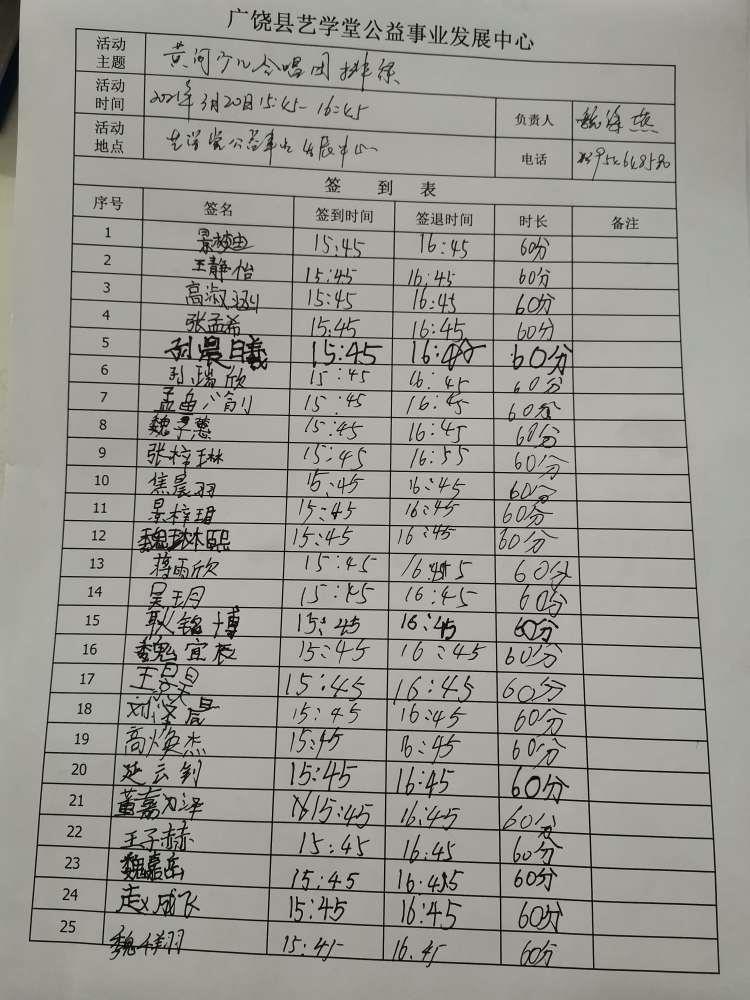 广饶县艺学堂公益事业发展中心
活动主题 黄河少儿合唱团排练
活动时间 2021年3月20日15:45-16:45 负责人
活动地点 艺学堂公益事业发展中心 电话
签到表
序号 签名 签到时间 签退时间 时长 备注
1 景梦由 15:45 16:45 60分
2 王静怡 15:45 16:45 60分
3 高淑 15:45 16:45 60分
4 张孟希 15:45 16:45 60分
5 孙晨曦 15:45 16: 60分
6 孙瑞欣 15:45 16:45 60分
7 孟 15:45 16:45 60分
8 魏子惠 15:45 16:45 60分
9 张梓琳 15:45 16:55 60分
10 焦晨羽 15:45 16:45 60分
11 景梓玥 15:45 16:45 60分
12 魏琳熙 15:45 16:45 60分
13 蒋雨欣 15:45 16:45 60分
14 吴玥 15:45 16:45 60分
15 耿铭博 15:45 16:45 60分
16 魏宜辰 15:45 16:45 60分
17 王昊 15:45 16:45 60分
18 刘泽晨 15:45 16:45 60分
19 高焕杰 15:45 16:45 60分
20 延云钊 15:45 16:45 60分
21 董嘉泽 15:45 16:45 60分
22 王子赫 15:45 16:45 60分
23 魏嘉岳 15:45 16:45 60分
24 赵成飞 15:45 16:45 60分
25 魏祥羽 15:45 16.45 60分